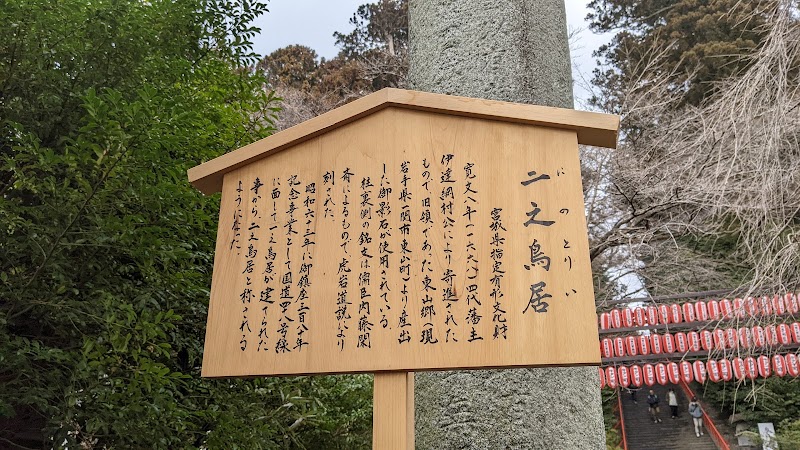 にのとりい
二之鳥居
宮城県指定有形文化財
寛文八年(一六六八)四代藩主
伊達綱村公により寄進された
もので、旧領であった東山郷(現
岩手県一関市東山町)より産出
した御影石が使用されている。
柱裏側の銘文は儒臣内藤閑
斎によるもので、虎岩道説により
刻された。
昭和六十三年に御鎮座三百八年
記念事業として国道四八号線
に面して一之鳥居が建てられた
事から、二之鳥居と称される
ように居た。